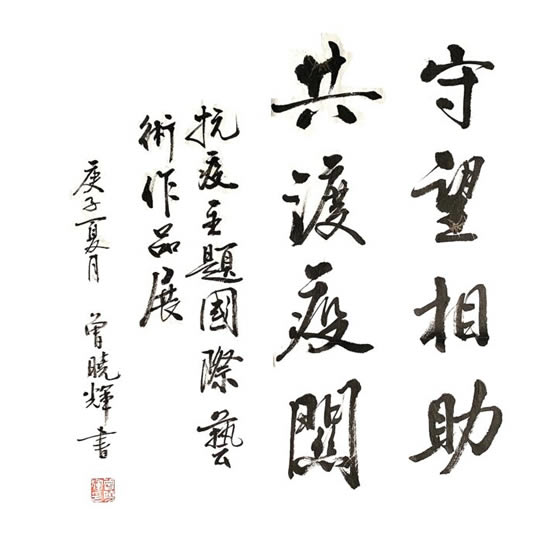 守望相助
共渡疫關
抗疫主題國際藝
術作品展
庚子夏月 曾曉輝書